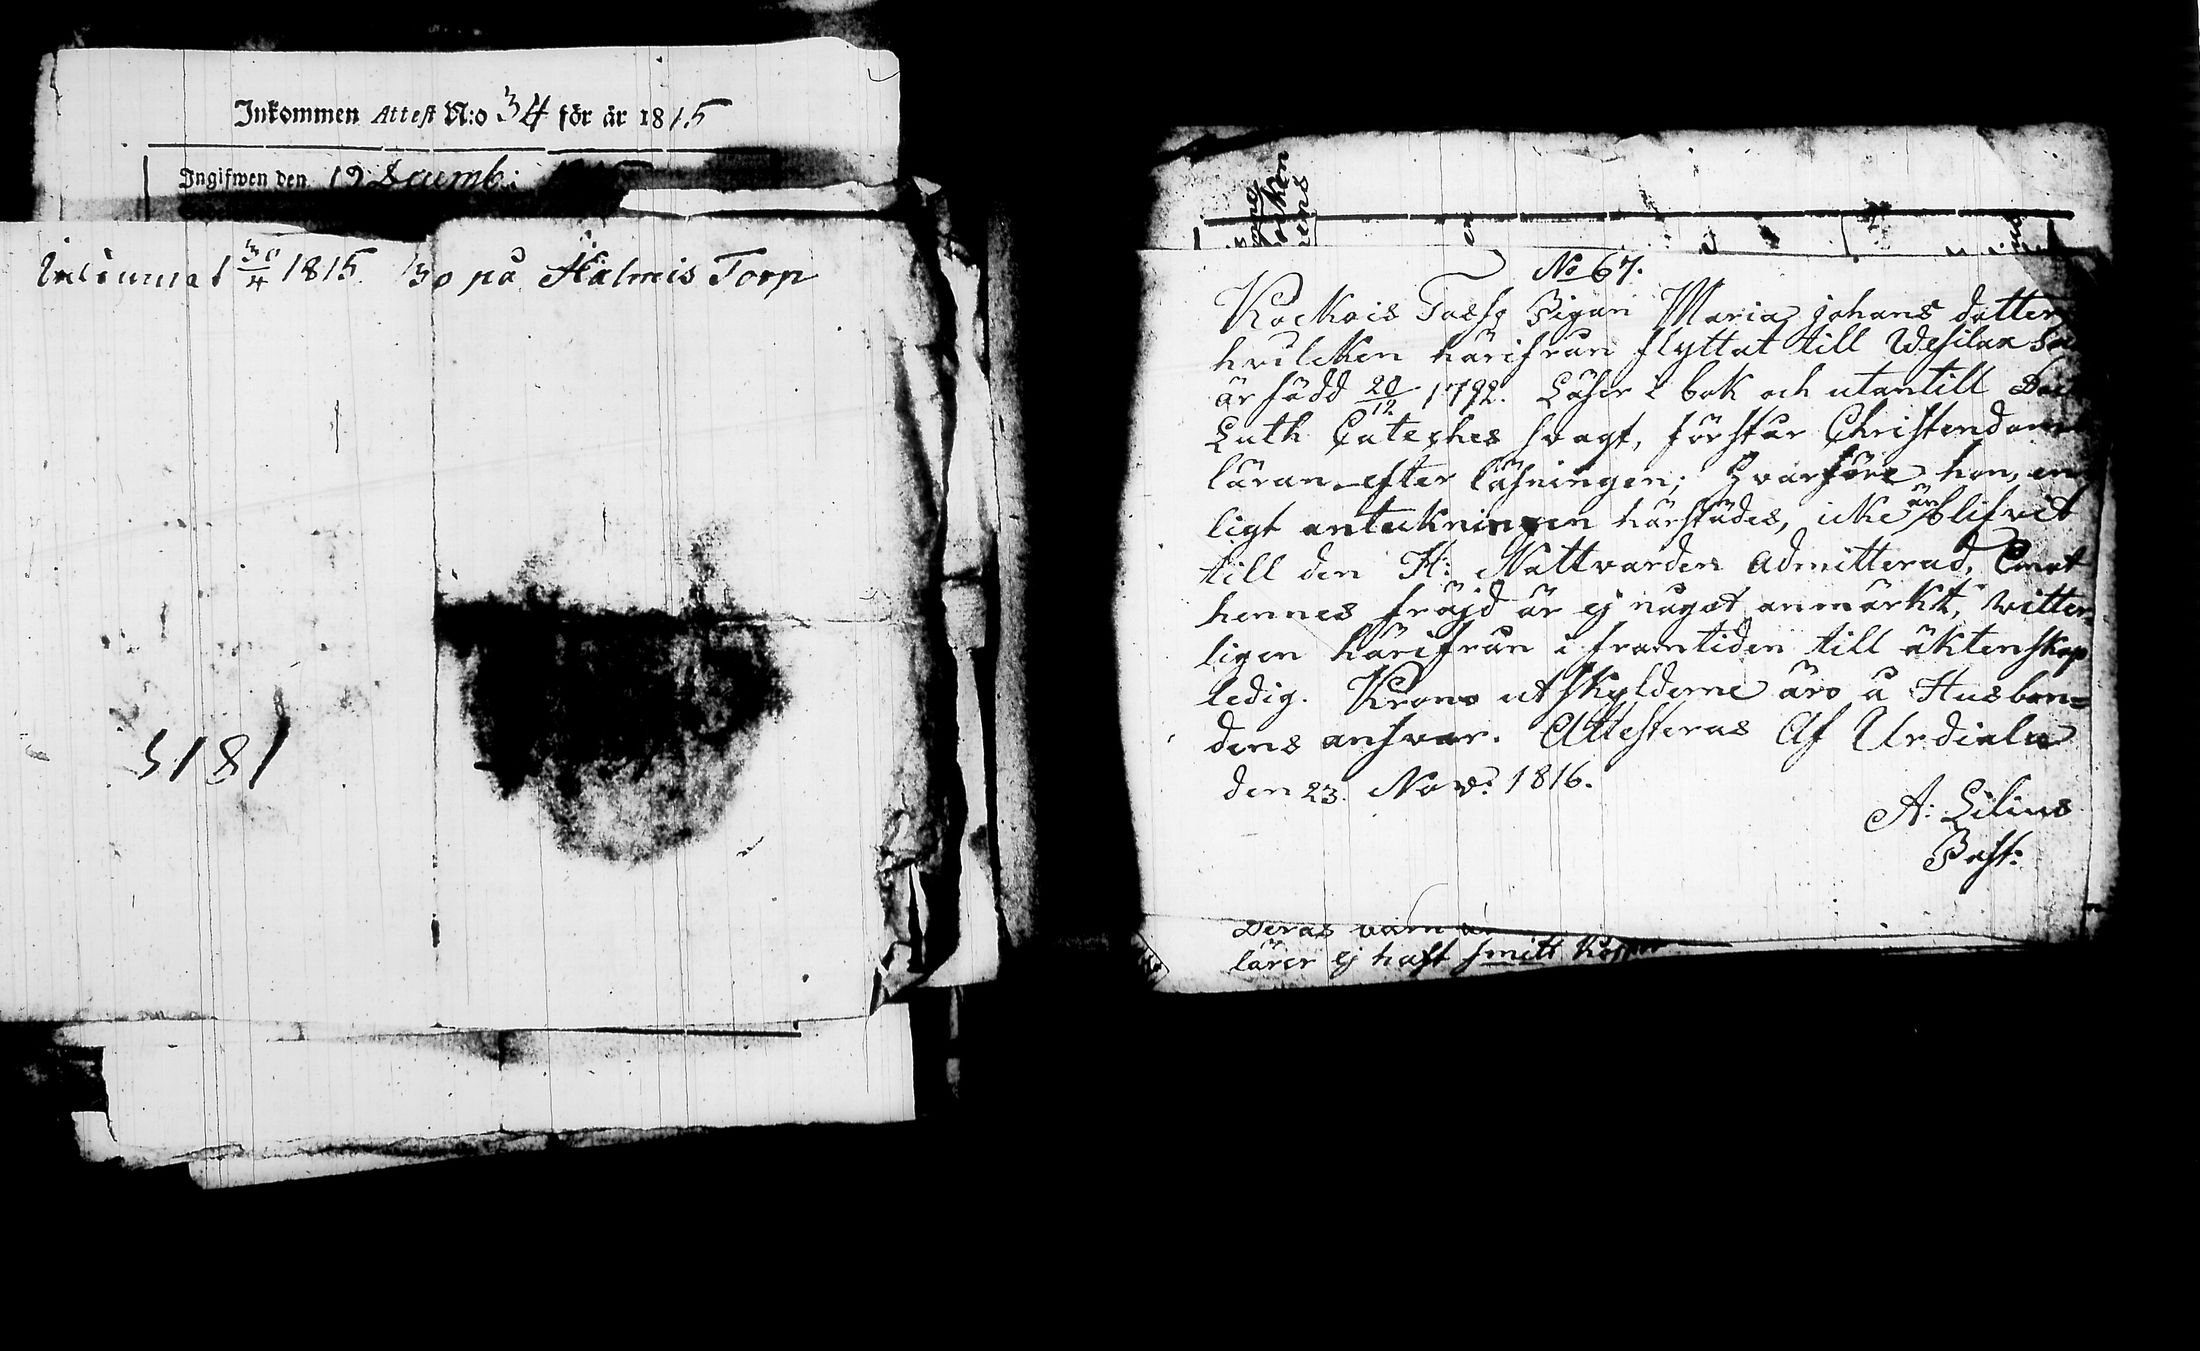 Inkommen Attest N:o 34 för år 1815
Ingifwen den 19 Decemb:
Inlämnat 30/4 1815. Bo på Halmis Torp
5181
No 67.
Kockois Tassg Pigan Maria Johans dotter
hvilcken härifrån flyttat till Wesilax
är född 20/12 1792. Läser i bok och utantill
Luth Cateches svagt, förstår Christendoms
läran efter läsningen; Hvarföre hon, en
ligt anteckningen härstädes, icke är blifvit
till den H: Nattvarden admitterad. Emot
hennes fräjd är ej något anmärkt, witter-
ligen härifrån i framtiden till äktenskap
ledig. Krono utskylderne äro å Husbon=
dens answar. Attesteras Af Urdiala
den 23. Nov: 1816.
A: Lilius
Past:
Deras barn
lärer ej haft smitt kopper